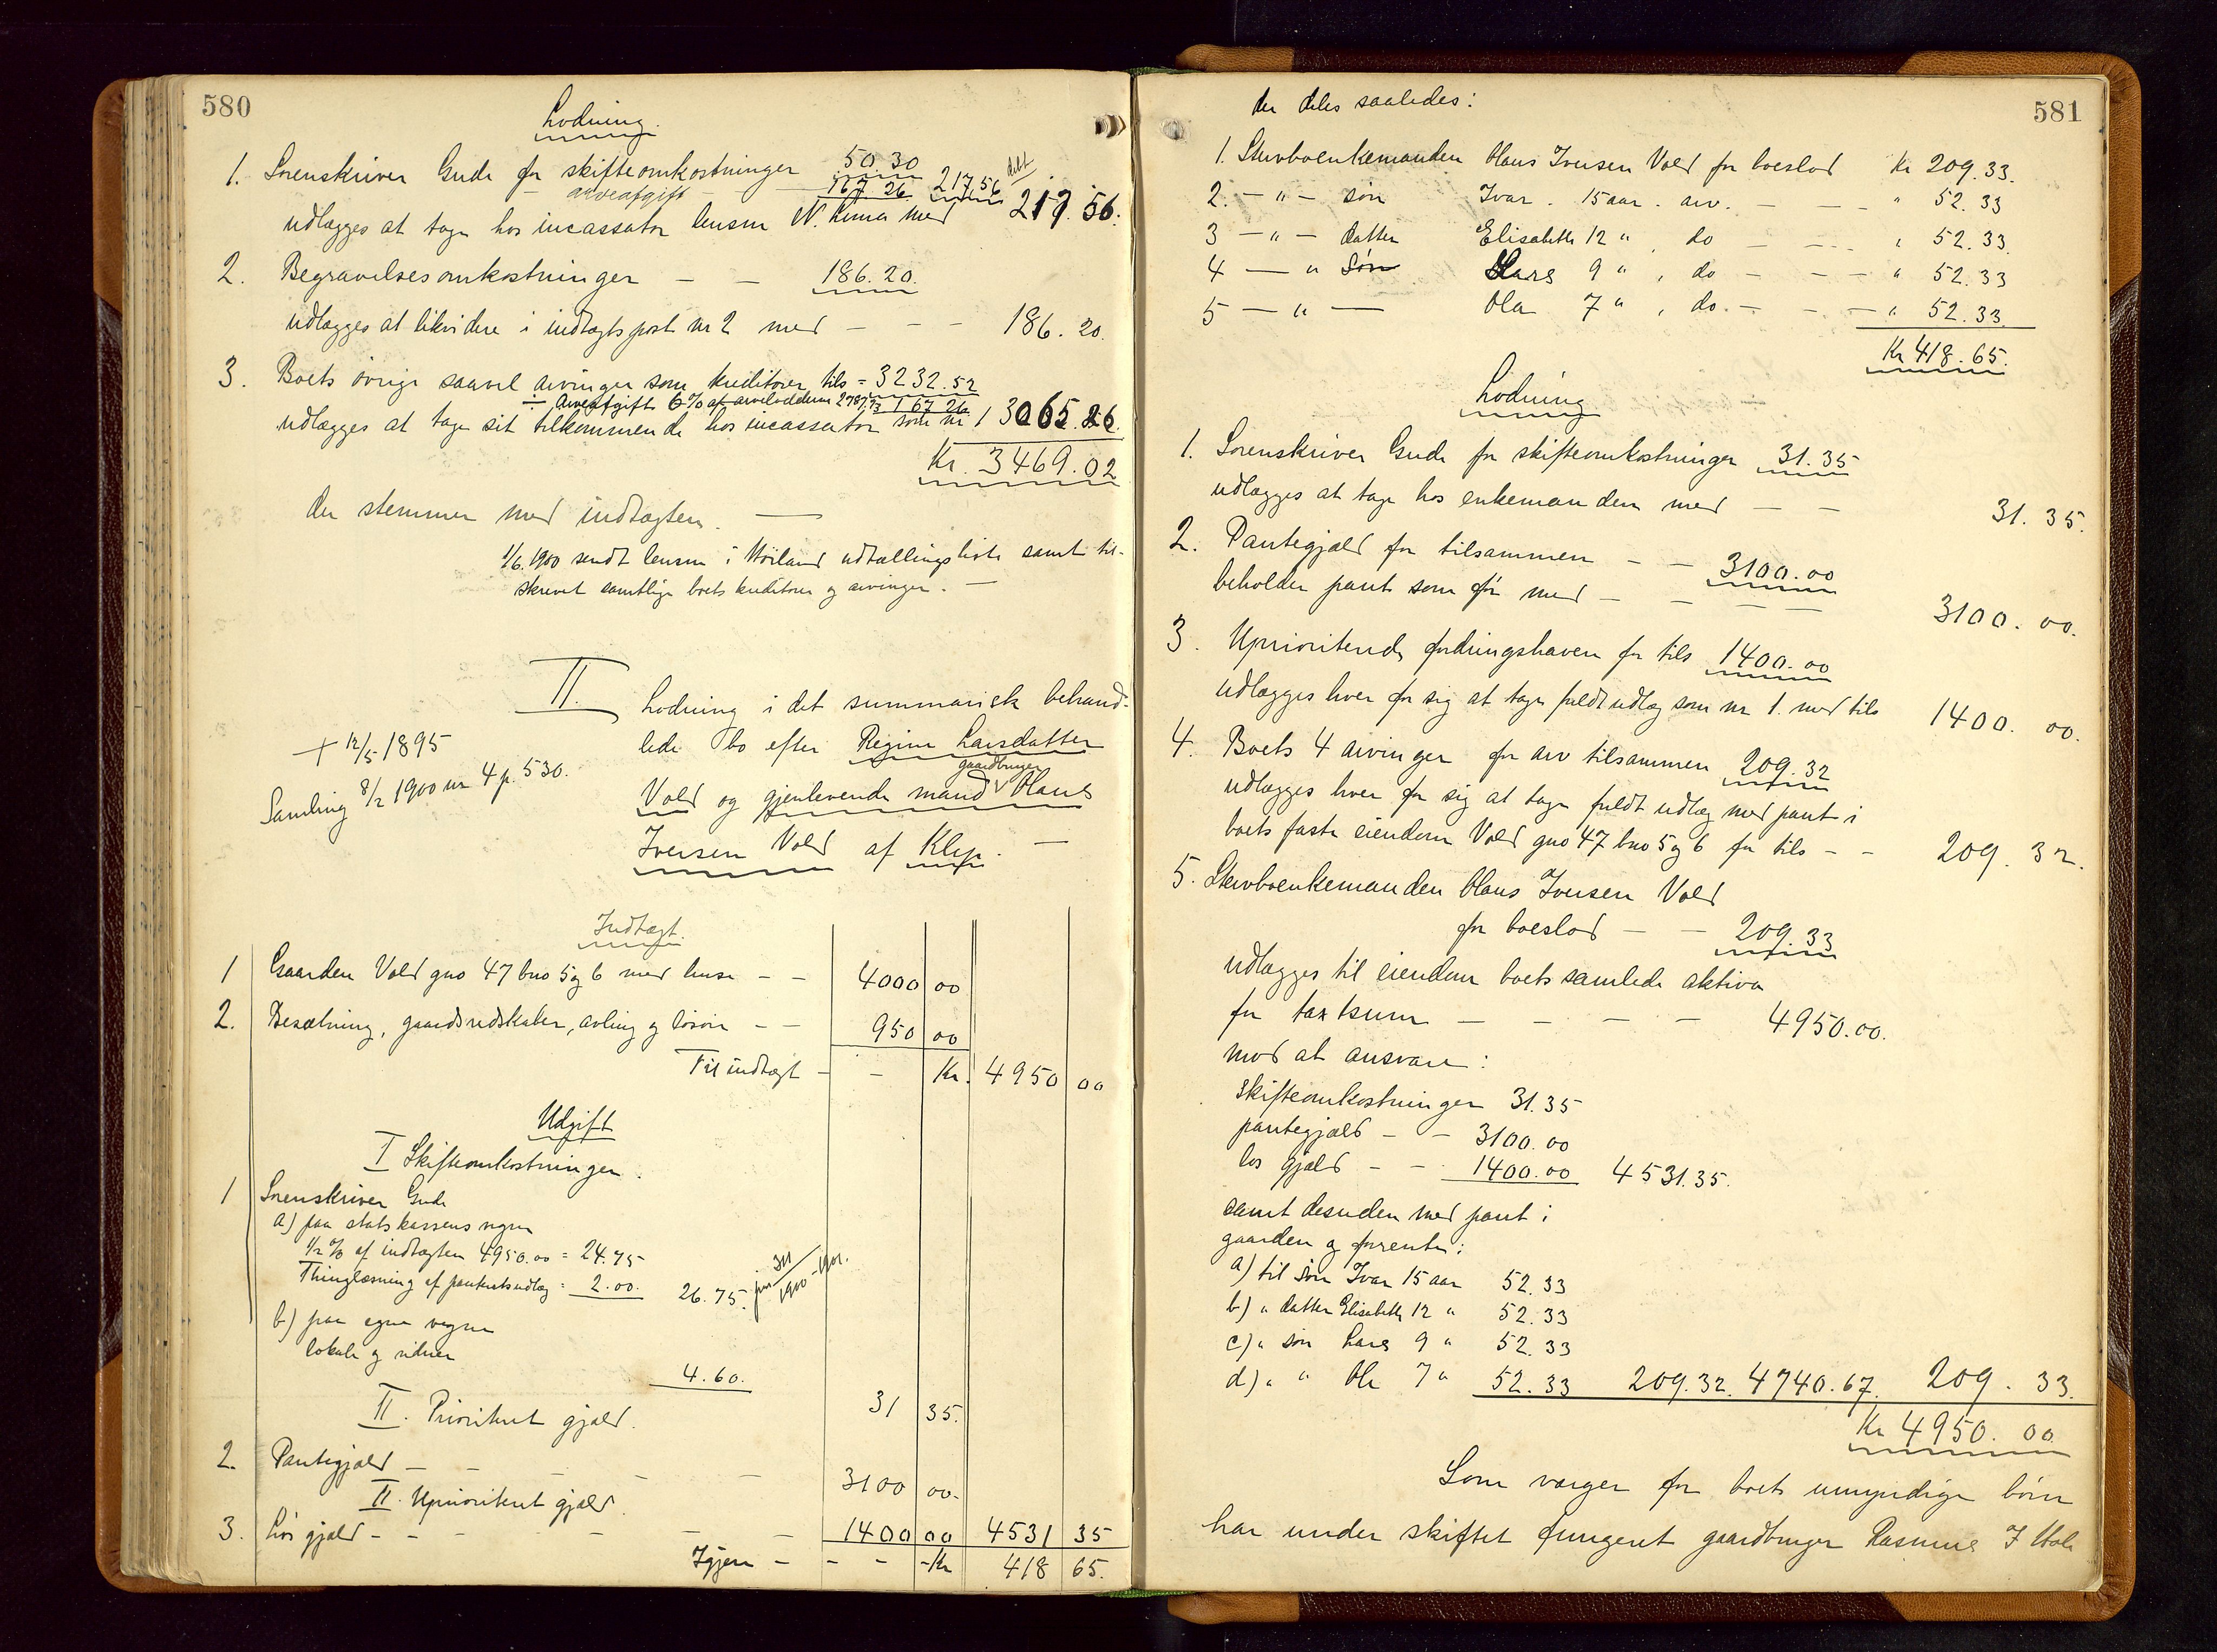 580
Lodning.
1. Sorenskriver Gude for skifteomkostninger 50 30
— arveafgift — 167 26 217.56
udlægges at tage hos incassator lensm N. Lima med 217.56.
2. Begravelsesomkostninger — — 186.20.
udlægges at likvidere i indtægtspost nr 2 med — — — 186.20.
3. Boets øvrige saavel arvinger som kreditorer tils = 3232.52
÷ Arveafgift 6% af arvelodderne 2787,73 167 26
udlægges at tage sit tilkommende hos incassator som nr 1 3065.26.
Kr. 3469.02
der stemmer med indtægten. —
1/6.1900 sendt lensm i udtællingsliste samt til-
skrevet samtlige boets kreditorer og arvinger. —
II. Lodning i det summarisk behand-
lede bo efter Regine Larsdatter
Vold og gjenlevende mand gaardbruger Olaus
Iversen Vold af Klep. —
+ 12/5 1895
Samling 8/2 1900 nr 4 p. 530.
Indtægt.
1 Gaarden Vold gno 47 bno 5 og 6 med huse — — 4000 00
2. Besætning, gaardsredskaber, avling og løsøre — — 950 00
Til indtægt — — Kr. 4950 00
Udgift
I Skifteomkostninger.
1 Sorenskriver Gude
a) paa statskassens vegne
1/2 % af indtægten 4950.00 = 24.75
Thinglæsning af panteretsudlæg = 2.00. 26.75.
b) paa egne vegne
lokale og vidner 4.60.
31 35.
II. Prioritert gjæld.
2. Pantegjæld — — — — — 3100 00.
II. Uprioritert gjæld.
3. Løs gjæld — — — — — — 1400 00 4531 35
Igjen — — — — Kr 418 65.
581
der deles saaledes:
1. Stervboenkemanden Olaus Iversen Vold for boeslod Kr 209.33.
2. — " — søn Ivar . 15 aar . arv. — — — " 52.33
3 — " — datter Elisabeth 12 " , do — — — " 52.33.
4 — " Søn Lars 9 " , do — — — " 52.33
5 — " — Ola 7 " , do. — — — " 52.33.
Kr 418.65.
Lodning
1. Sorenskriver Gude for skifteomkostninger 31.35
udlægges at tage hos enkemanden med — — 31.35.
2. Pantegjæld for tilsammen — — 3100.00
beholder pant som før med — — — — 3100.00.
3. Uprioriterede fordringshavere for tils 1400.00
udlægges hver for sig at tage fuldt udlæg som nr 1. med tils 1400.00.
4. Boets 4 arvinger for arv tilsammen 209.32
udlægges hver for sig at tage fuldt udlæg med pant i
boets faste eiendom Vold gno 47 bno 5 og 6 for tils — — 209.32.
5. Stervboenkemanden Olaus Iversen Vold
for boeslod — — 209.33
udlægges til eiendom boets samlede aktiva
for taxtsum — — — — 4950.00.
mod at ansvare:
skifteomkostninger 31.35
pantegjæld — — 3100.00
løs gjæld — — 1400.00 4531.35.
samt desuden med pant i
gaarden og forrente:
a) til søn Ivar 15 aar 52.33
b) " datter Elisabeth 12 " 52.33
c) " søn Lars 9 " 52.33
d) " " Ole 7 " 52.33 209.32. 4740.67. 209.33.
Kr 4950.00
Som værger for boets umyndige børn
har under skiftet fungeret gaardbruger Rasmus I